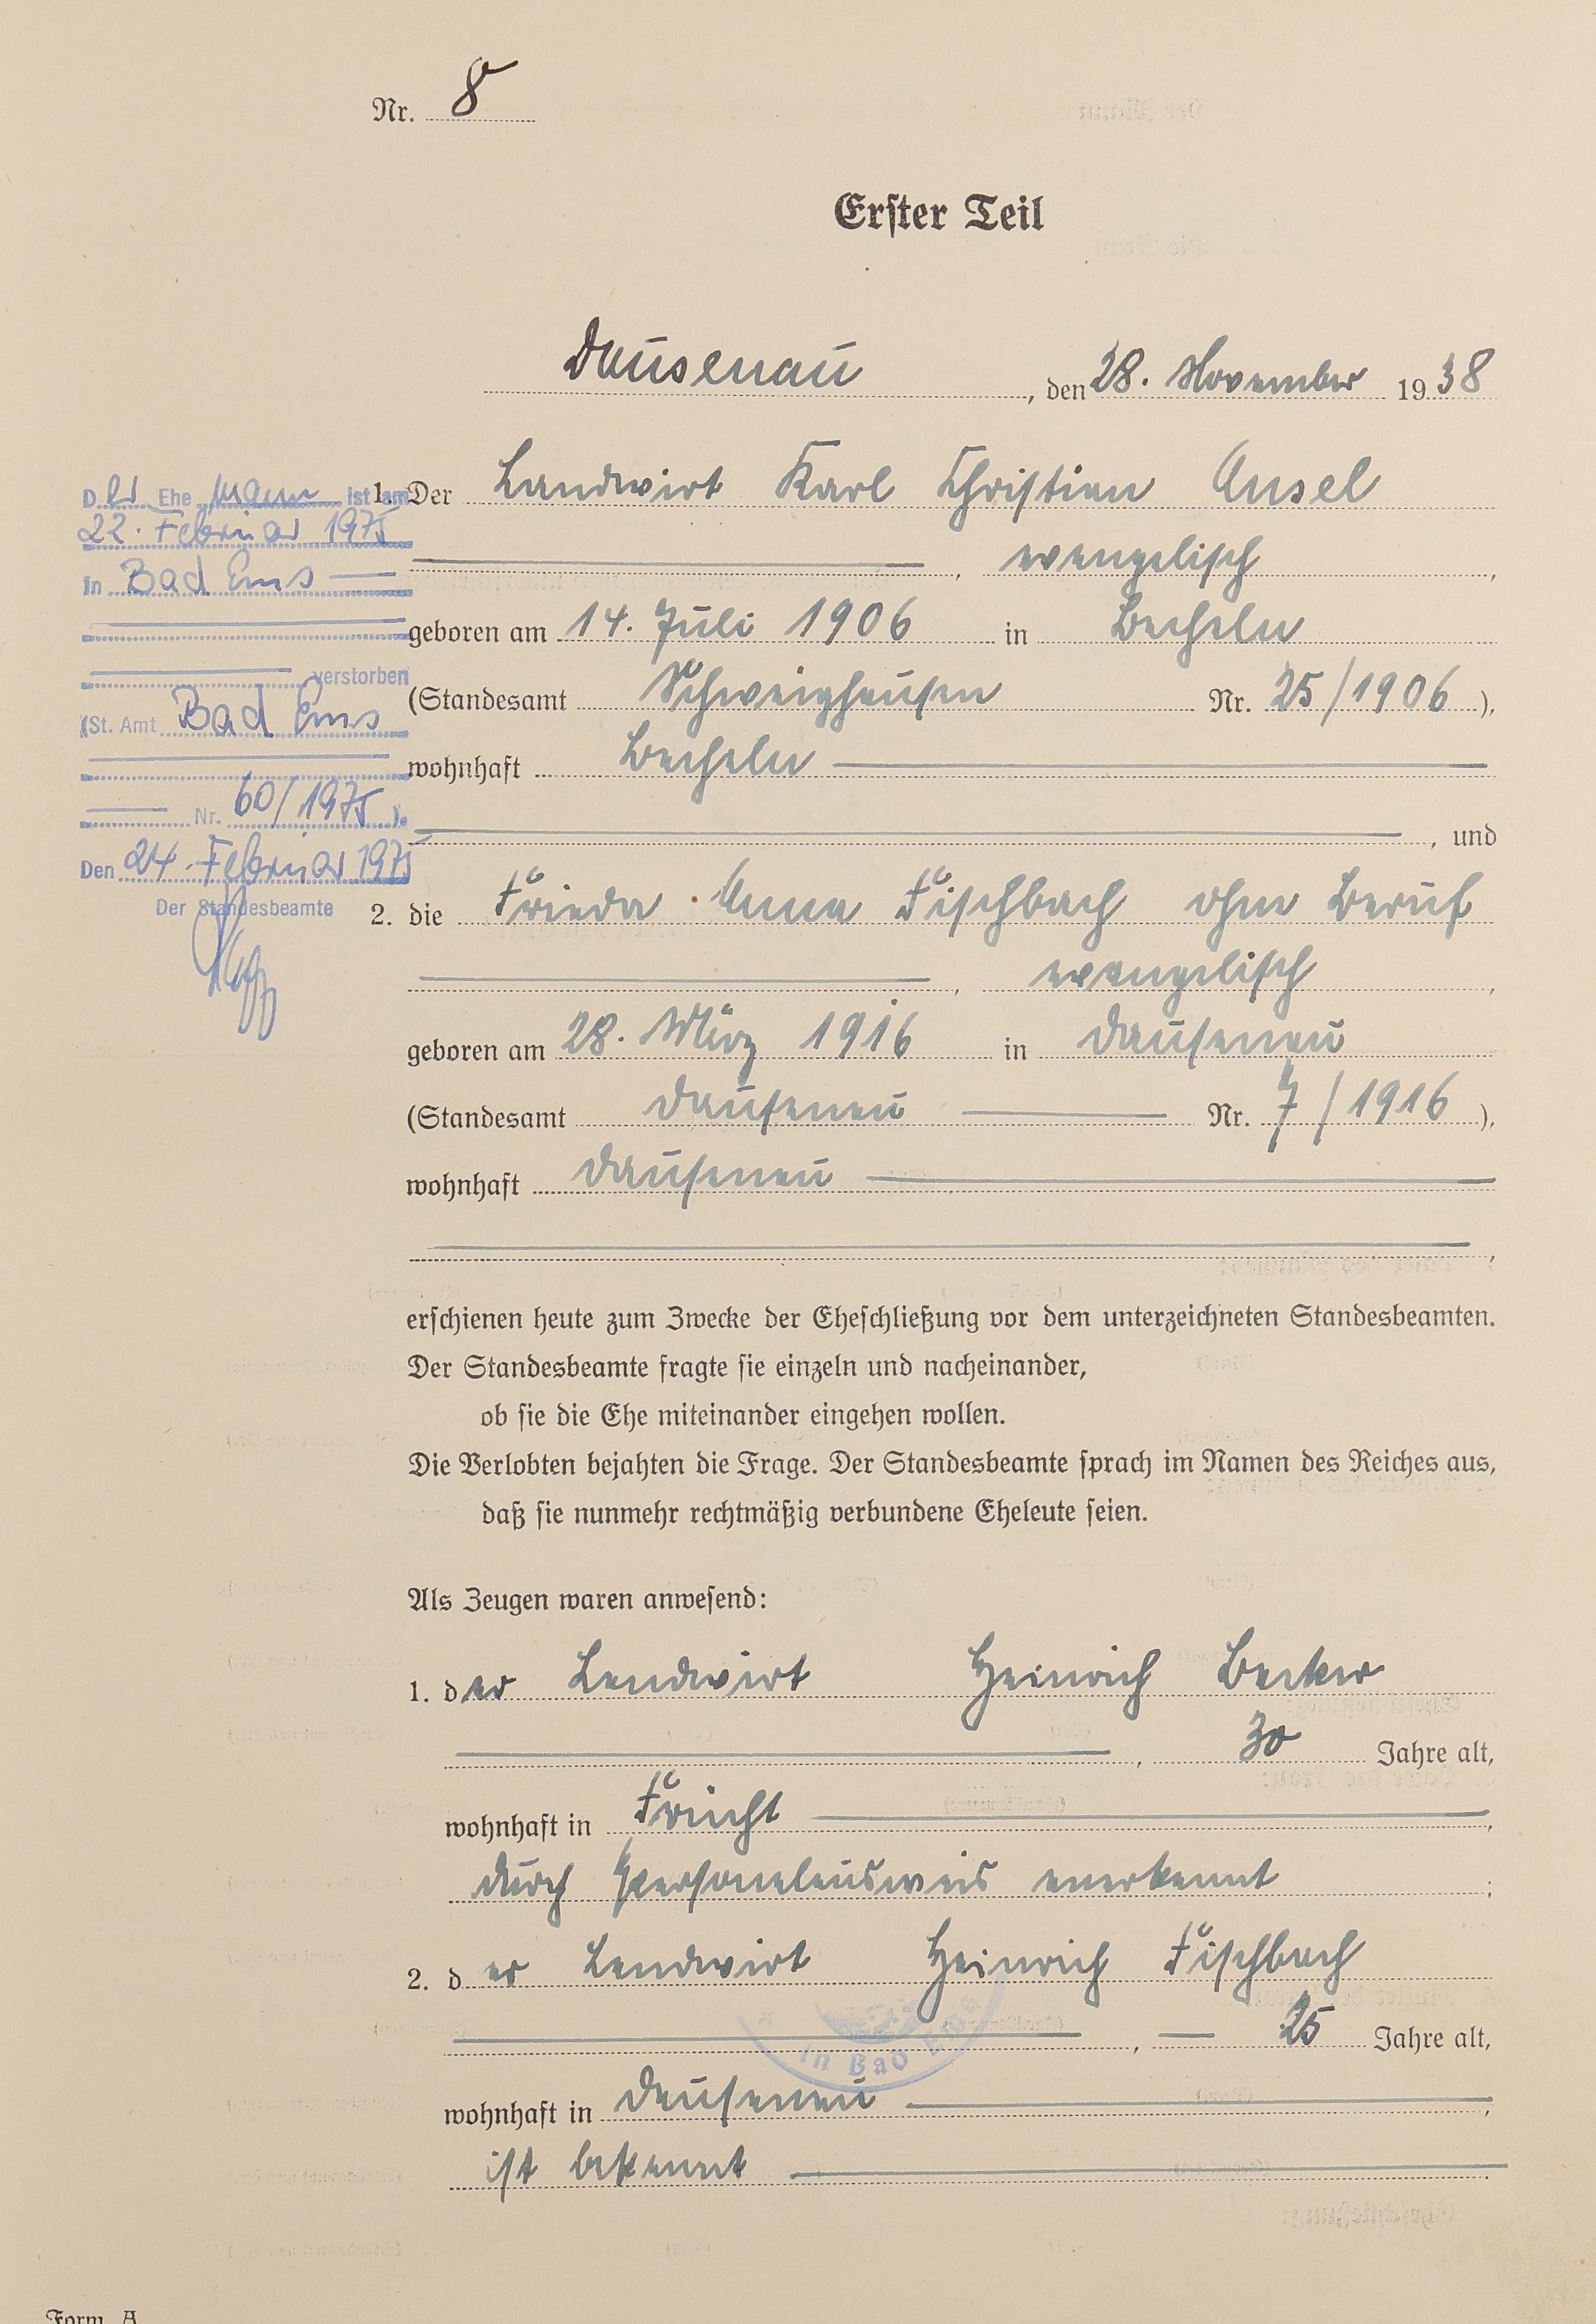 Nr. 8
Erster Teil
Dausenau, den 28. November 1938
1. Der Landwirt Karl Christian Ansel
, evangelisch,
geboren am 14. Juli 1906 in Becheln
(Standesamt Schweighausen Nr. 25/1906),
wohnhaft Becheln
, und
2. die Frieda Anna Fischbach ohne Beruf
, evangelisch,
geboren am 28. März 1916 in Dausenau
(Standesamt Dausenau Nr. 7/1916),
wohnhaft Dausenau
,
erschienen heute zum Zwecke der Eheschließung vor dem unterzeichneten Standesbeamten.
Der Standesbeamte fragte sie einzeln und nacheinander,
ob sie die Ehe miteinander eingehen wollen.
Die Verlobten bejahten die Frage. Der Standesbeamte sprach im Namen des Reiches aus,
daß sie nunmehr rechtmäßig verbundene Eheleute seien.
Als Zeugen waren anwesend:
1. der Landwirt Heinrich Becker
, 30 Jahre alt,
wohnhaft in Frücht,
durch Personalausweis anerkannt;
2. der Landwirt Heinrich Fischbach
, 25 Jahre alt,
wohnhaft in Dausenau,
ist bekannt.
Der Ehemann ist am
22. Februar 1975
in Bad Ems
verstorben
(St. Amt Bad Ems
Nr. 60/1975).
Den 24. Februar 1975
Der Standesbeamte
in Bad Ems
Form. A